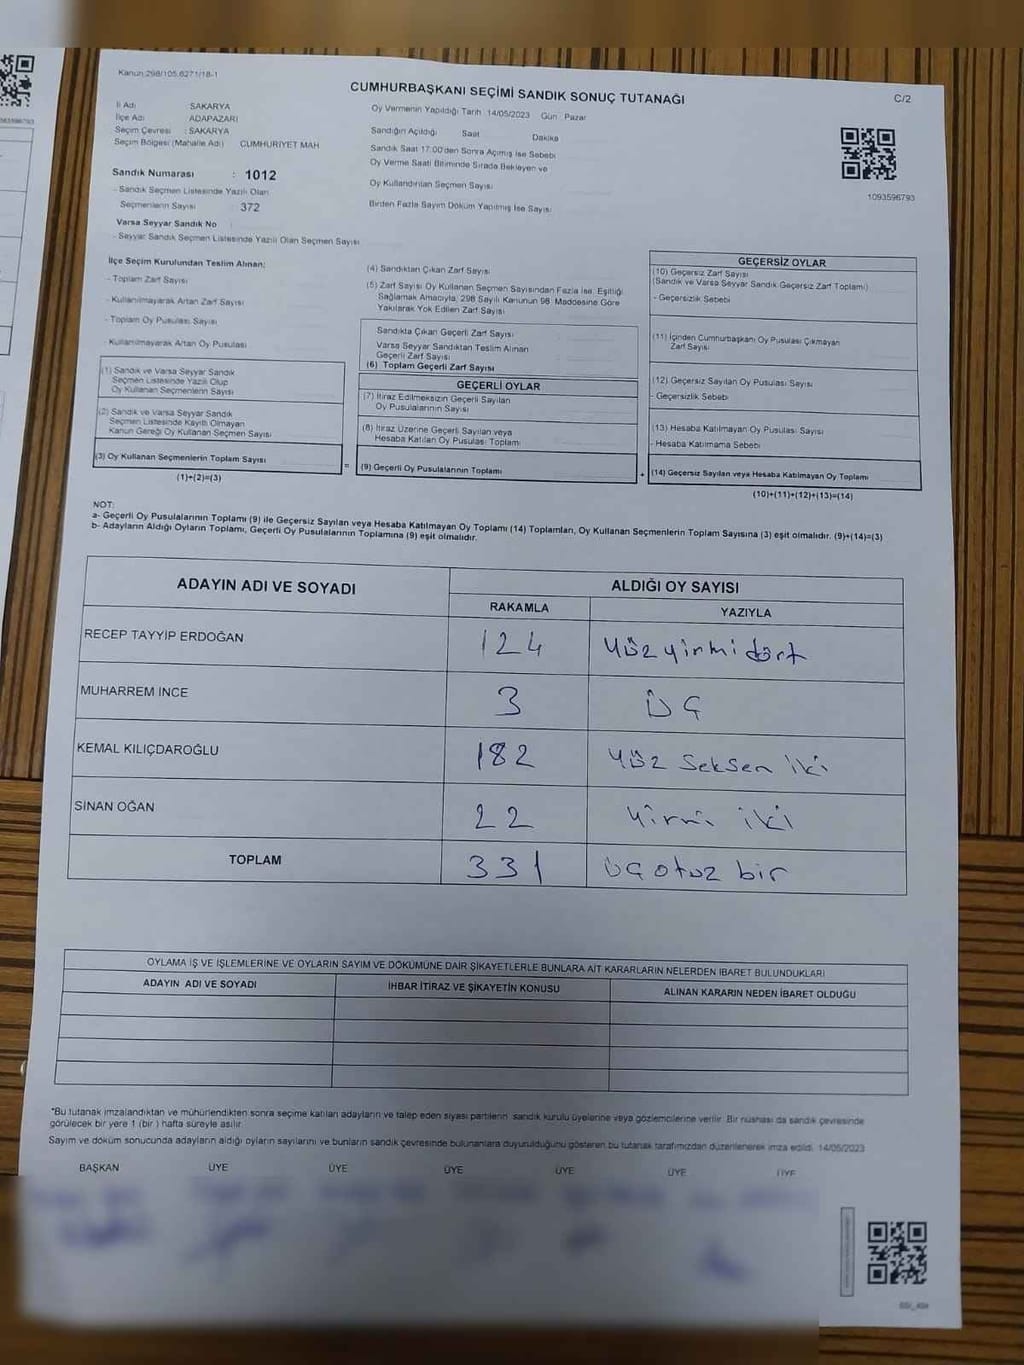 Kanun:298/105,6271/18-1
CUMHURBAŞKANI SEÇİMİ SANDIK SONUÇ TUTANAĞI
C/2
İl Adı SAKARYA
İlçe Adı ADAPAZARI
Seçim Çevresi : SAKARYA
Seçim Bölgesi (Mahalle Adı) CUMHURİYET MAH
Oy Vermenin Yapıldığı Tarih 14/05/2023 Gün Pazar
Sandığın Açıldığı Saat Dakika
Sandık Saat 17:00'den Sonra Açılmış İse Sebebi
Oy Verme Saati Bitiminde Sırada Bekleyen ve
Oy Kullandırılan Seçmen Sayısı
Birden Fazla Sayım Döküm Yapılmış İse Sayısı
1093596793
Sandık Numarası : 1012
- Sandık Seçmen Listesinde Yazılı Olan
Seçmenlerin Sayısı 372
Varsa Seyyar Sandık No
- Seyyar Sandık Seçmen Listesinde Yazılı Olan Seçmen Sayısı
İlçe Seçim Kurulundan Teslim Alınan;
- Toplam Zarf Sayısı
- Kullanılmayarak Artan Zarf Sayısı
- Toplam Oy Pusulası Sayısı
- Kullanılmayarak Artan Oy Pusulası
(1) Sandık ve Varsa Seyyar Sandık
Seçmen Listesinde Yazılı Olup
Oy Kullanan Seçmenlerin Sayısı
(2) Sandık ve Varsa Seyyar Sandık
Seçmen Listesinde Kayıtlı Olmayan
Kanun Gereği Oy Kullanan Seçmen Sayısı
(3) Oy Kullanan Seçmenlerin Toplam Sayısı
(1)+(2)=(3)
(4) Sandıktan Çıkan Zarf Sayısı
(5) Zarf Sayısı Oy Kullanan Seçmen Sayısından Fazla İse, Eşitliği
Sağlamak Amacıyla, 298 Sayılı Kanunun 98. Maddesine Göre
Yakılarak Yok Edilen Zarf Sayısı
Sandıkta Çıkan Geçerli Zarf Sayısı
Varsa Seyyar Sandıktan Teslim Alınan
Geçerli Zarf Sayısı
(6) Toplam Geçerli Zarf Sayısı
GEÇERLİ OYLAR
(7) İtiraz Edilmeksizin Geçerli Sayılan
Oy Pusulalarının Sayısı
(8) İtiraz Üzerine Geçerli Sayılan veya
Hesaba Katılan Oy Pusulası Toplamı
= (9) Geçerli Oy Pusulalarının Toplamı
GEÇERSİZ OYLAR
(10) Geçersiz Zarf Sayısı
(Sandık ve Varsa Seyyar Sandık Geçersiz Zarf Toplamı)
- Geçersizlik Sebebi
(11) İçinden Cumhurbaşkanı Oy Pusulası Çıkmayan
Zarf Sayısı
(12) Geçersiz Sayılan Oy Pusulası Sayısı
- Geçersizlik Sebebi
(13) Hesaba Katılmayan Oy Pusulası Sayısı
- Hesaba Katılmama Sebebi
+ (14) Geçersiz Sayılan veya Hesaba Katılmayan Oy Toplamı
(10)+(11)+(12)+(13)=(14)
NOT:
a- Geçerli Oy Pusulalarının Toplamı (9) ile Geçersiz Sayılan veya Hesaba Katılmayan Oy Toplamı (14) Toplamları, Oy Kullanan Seçmenlerin Toplam Sayısına (3) eşit olmalıdır. (9)+(14)=(3)
b- Adayların Aldığı Oyların Toplamı, Geçerli Oy Pusulalarının Toplamına (9) eşit olmalıdır.
ADAYIN ADI VE SOYADI
ALDIĞI OY SAYISI
RAKAMLA YAZIYLA
RECEP TAYYİP ERDOĞAN 124 Yüz yirmi dört
MUHARREM İNCE 3 ÜÇ
KEMAL KILIÇDAROĞLU 182 Yüz Seksen iki
SİNAN OĞAN 22 Yirmi iki
TOPLAM 331 ÜÇ otuz bir
OYLAMA İŞ VE İŞLEMLERİNE VE OYLARIN SAYIM VE DÖKÜMÜNE DAİR ŞİKAYETLERLE BUNLARA AİT KARARLARIN NELERDEN İBARET BULUNDUKLARI
ADAYIN ADI VE SOYADI
İHBAR İTİRAZ VE ŞİKAYETİN KONUSU
ALINAN KARARIN NEDEN İBARET OLDUĞU
*Bu tutanak imzalandıktan ve mühürlendikten sonra seçime katılan adayların ve talep eden siyasi partilerin sandık kurulu üyelerine veya gözlemcilerine verilir. Bir nüshası da sandık çevresinde
görülecek bir yere 1 (bir) hafta süreyle asılır.
Sayım ve döküm sonucunda adayların aldığı oyların sayılarını ve bunların sandık çevresinde bulunanlara duyurulduğunu gösteren bu tutanak tarafımızdan düzenlenerek imza edildi. 14/05/2023
BAŞKAN ÜYE ÜYE ÜYE ÜYE ÜYE ÜYE